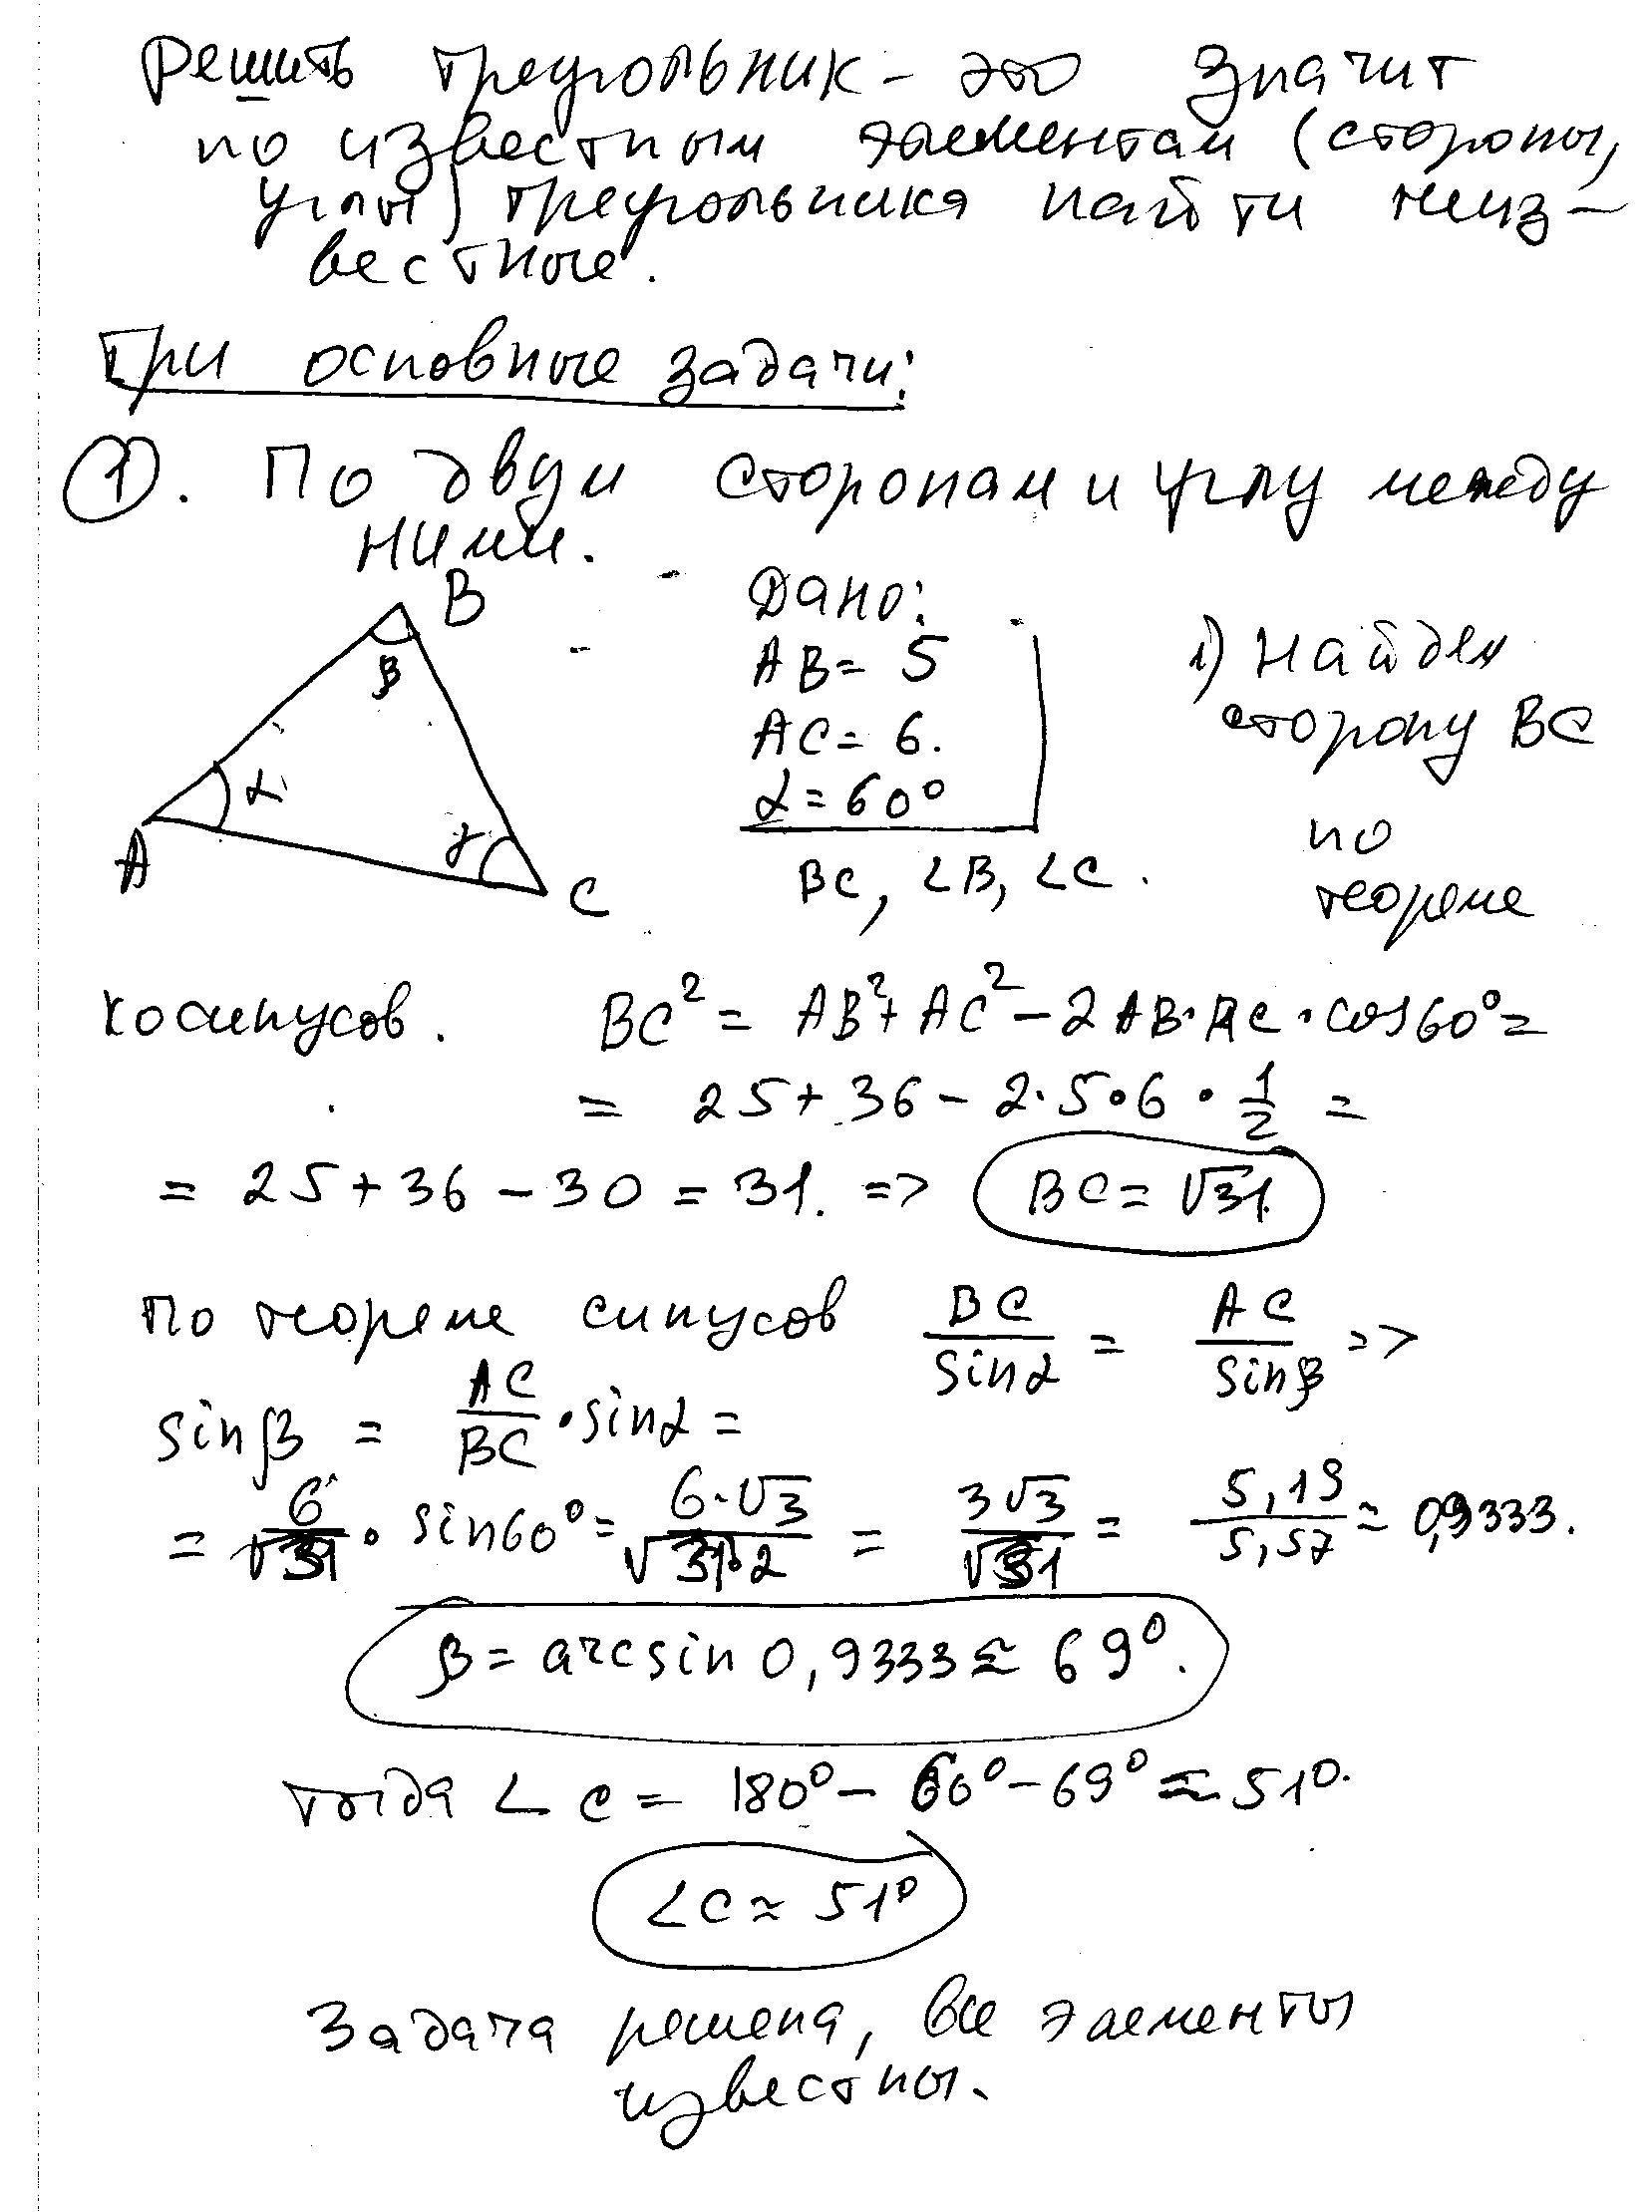 Решить треугольник - это значит
по известным элементам (стороны,
углы) треугольника найти неиз-
вестные.
Три основные задачи:
①. По двум сторонам и углу между
ними.
B
β
α
A
γ
C
Дано:
AB = 5
AC = 6.
α = 60°
BC, ∠B, ∠C.
1) Найдем
сторону BC
по
теореме
косинусов. BC² = AB² + AC² - 2AB·AC·cos60° =
= 25 + 36 - 2·5·6·1/2 =
= 25 + 36 - 30 = 31. => BC = √31.
По теореме синусов BC/sinα = AC/sinβ =>
sinβ = AC/BC · sinα =
= 6/√31 · sin60° = 6·√3/√31·2 = 3√3/√31 = 5,19/5,57 ≈ 0,9333.
β = arcsin 0,9333 ≈ 69°.
тогда ∠C = 180° - 60° - 69° ≈ 51°.
∠C ≈ 51°
Задача решена, все элементы
известны.